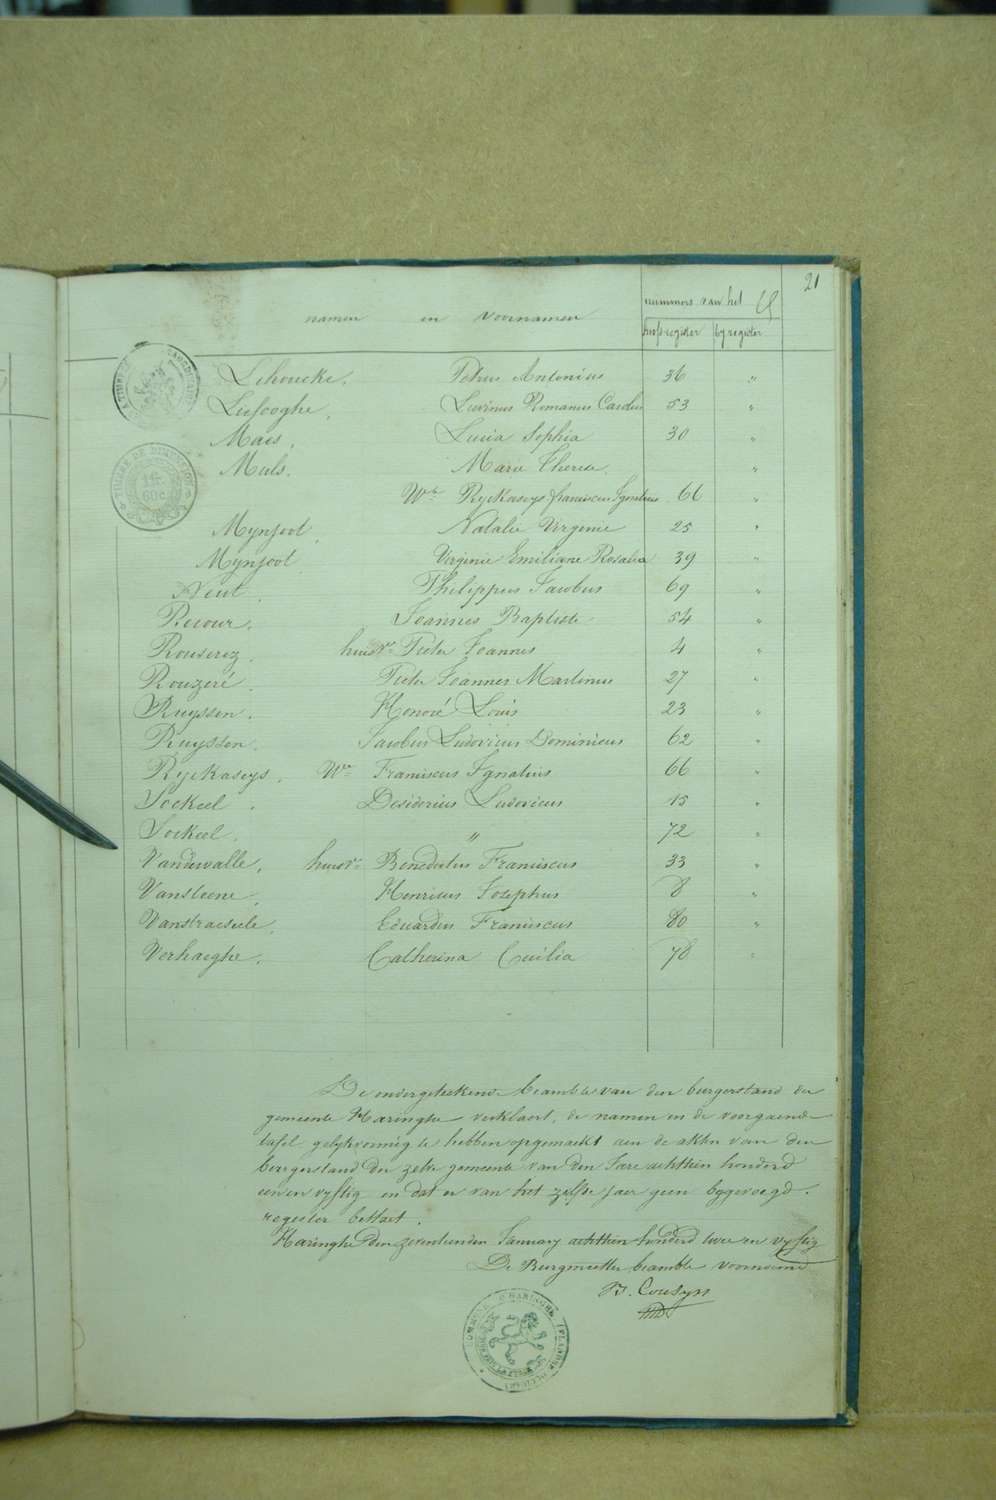 21
nummers van het
namen en voornamen
hoofregister byregister
Lehoucke. Petrus Antonius 36 "
Lusooghe. Livinus Romanus Carolus 53 "
Maes. Lucia Sophia 30 "
Muls. Marie Theresa "
Wed. Ryckaseys franciscus Ignatius 66 "
Mynsoot. Natalie Virginie 25 "
Mynsoot. Virginie Emiliane Rosalia 39 "
Neut. Philippus Jacobus 69 "
Recour. Joannes Baptiste 54 "
Rouserez. huisvr. Pieter Joannes 4 "
Rouzeré. Pieter Joannes Martinus 27 "
Ruyssen. Honoré Louis 23 "
Ruyssen. Jacobus Ludovicus Dominicus 62 "
Ryckaseys. Wed. Franciscus Ignatius 66 "
Sockeel. Desiderius Ludovicus 15 "
Sockeel. " 72 "
Vandewalle. huisvr. Benedictus Franciscus 33 "
Vansteene. Henricus Josephus 8 "
Vanstraeseele. Eduardus Franciscus 80 "
Verhaeghe. Catherina Cecilia 78 "
De ondergeteekende beambte van den burgerstand der
gemeente Haringhe verklaert, de namen in de voorgaende
tafel gelykvormig te hebben opgemaekt aen de akten van den
burgerstand der zelve gemeente van den Jare achttien honderd
een en vyftig en dat er van het zelfde jaer geen bygevoegd
register bestaet.
Haringhe den zeventienden January achttien honderd twee en vyftig
De Burgmeester beambte voornoemd
B. Cousyn
TIMBRE DE DIMENSION
1 fr.
60 c.
COMMUNE D'HARINGHE (FLANDRE OCCIDle)